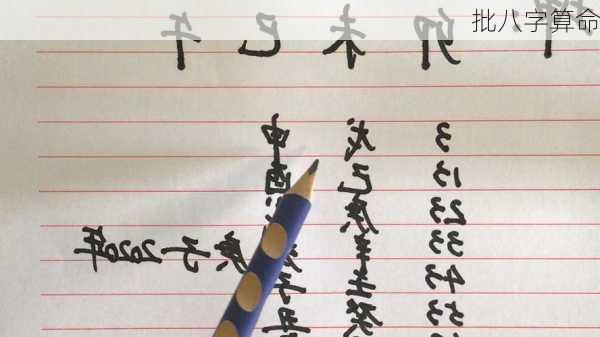 批八字算命
卯 未 巳 午
3 戊 申
13 己 酉
23 庚
33 辛 庚 子 2020年
43 壬 子
53 癸 丑